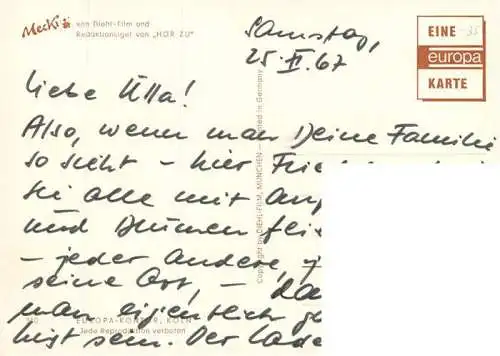 Mecki
von Diehl-Film und
Redaktionsigel von „HÖR ZU"
Samstag,
25. II. 67
EINE
europa
KARTE
35
Liebe Ulla!
Also, wenn man Deine Familie
so sieht – hier
sie alle mit
und Blumen
– jeder Andere,
seine Art, –
man eigentlich
lustig sein. Der
Copyright by DIEHL-FILM, MÜNCHEN — Printed in Germany
EUROPA-KONTOR, KÖLN
Jede Reproduktion verboten